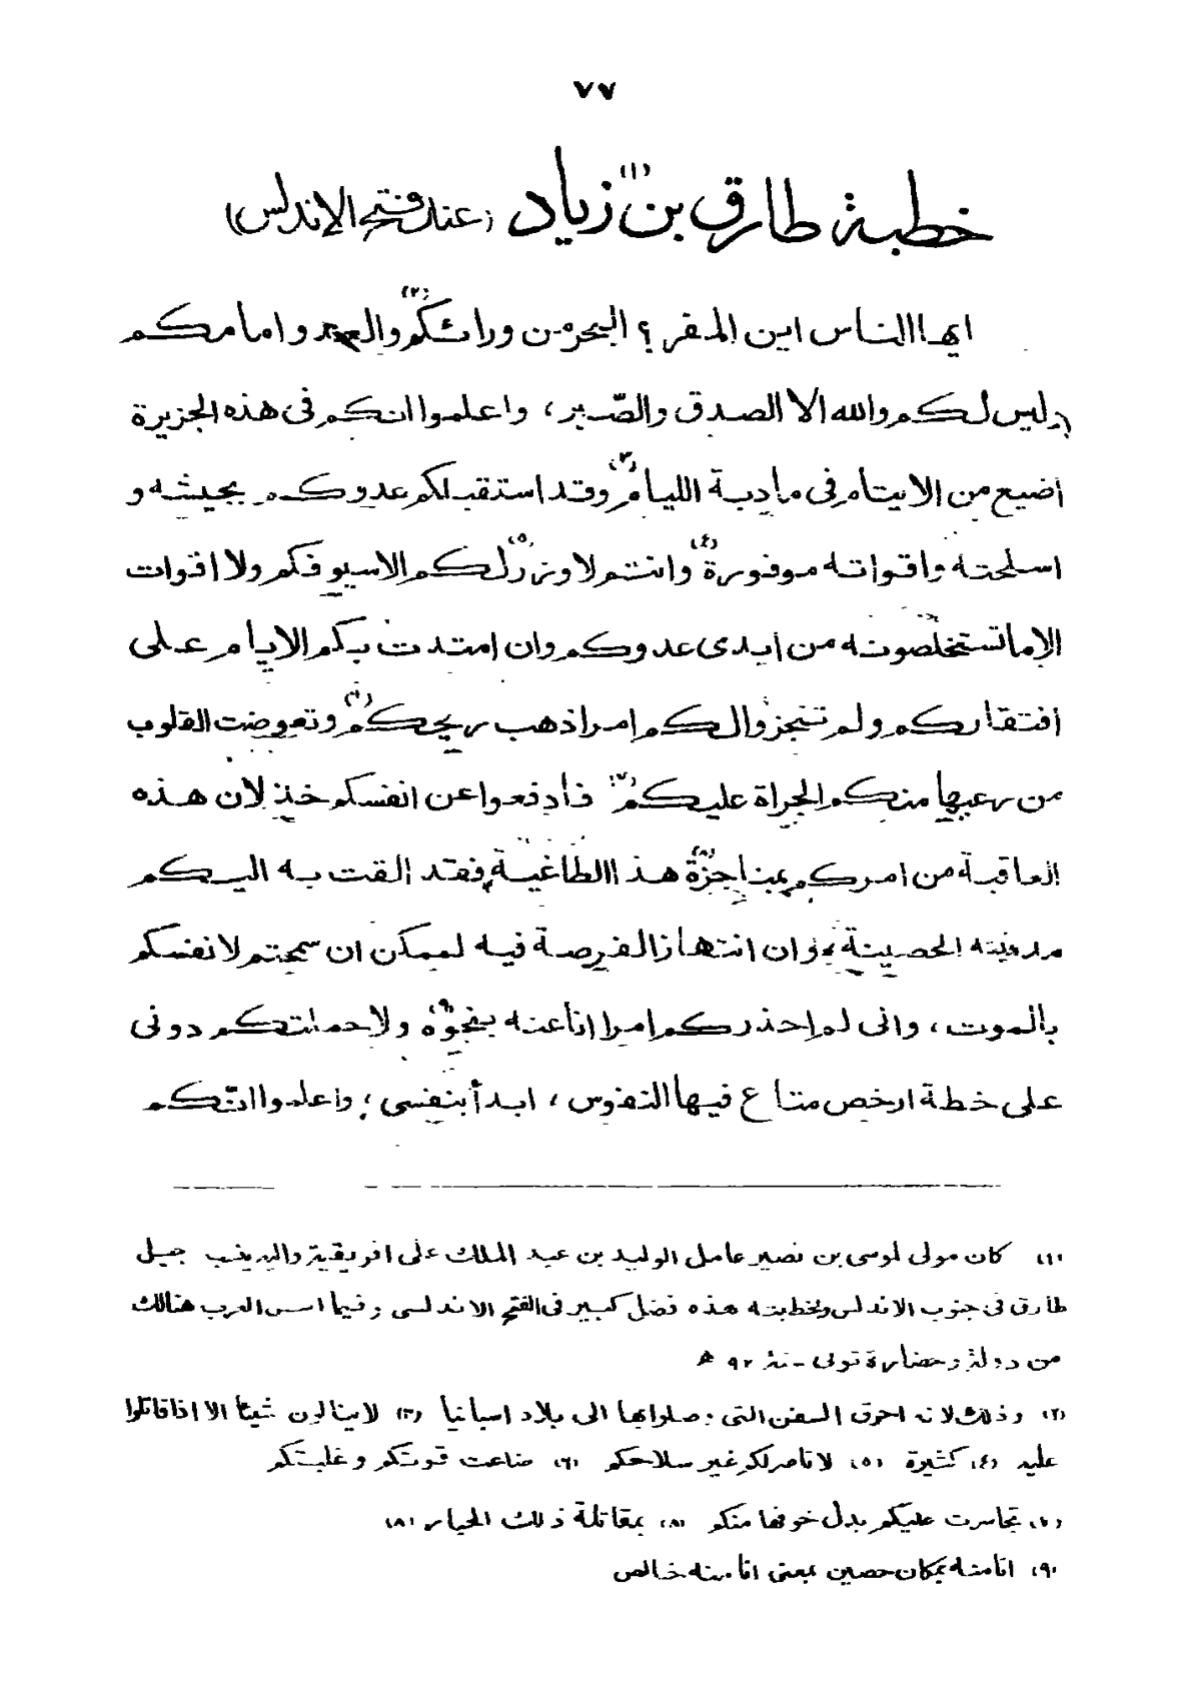 ٧٧
خطبة طارق بن زياد (١) (عند فتح الاندلس)
ايها الناس اين المفر ؟ البحر من ورائكم (٢) والعدو امامكم
وليس لكم والله الا الصدق والصّبر ، واعلموا انكم فى هذه الجزيرة
اضيع من الايتام فى مادبة الليام (٣) وقد استقبلكم عدوكم بجيشه و
اسلحته واقواته موفورة (٤) وانتم لا وزر لكم (٥) الا سيوفكم ولا اقوات
الا ما تستخلصونه من ايدى عدوكم وان امتدت بكم الايام على
افتقاركم ولم تنجزوا لكم امرا ذهب ريحكم (٦) وتعوضت القلوب
من رعبها منكم الجراة عليكم (٧) فادفعوا عن انفسكم خذلان هذه
العاقبة من امركم بمناجزة (٨) هذا الطاغية فقد القت به اليكم
مدينته الحصينة ، وان انتهاز الفرصة فيه لممكن ان سمحتم لانفسكم
بالموت ، وانى لم احذركم امرا انا عنه بنجوة (٩) ولا حملتكم دونى
على خطة ارخص متاع فيها النفوس ، ابدأ بنفسى ، واعلموا انّكم
(١) كان مولى لموسى بن نصير عامل الوليد بن عبد الملك على افريقية واليه ينسب جبل
طارق فى جنوب الاندلس ولخطبته هذه فضل كبير فى الفتح الاندلسى وفيما اسس العرب هنالك
من دولة وحضارة توفى سنة ٩٢ هـ
(٢) وذلك لانه احرق السفن التى وصلوا بها الى بلاد اسبانيا (٣) لا ينالون شيئا الا اذا قاتلوا
عليه (٤) كثيرة (٥) لا ناصر لكم غير سلاحكم (٦) ضاعت قوتكم وغلبتكم
(٧) تجاسرت عليكم بدل خوفها منكم (٨) بمقاتلة ذلك الجبار (٨)
(٩) انا منه بمكان حصين بمعنى انا منه خالص